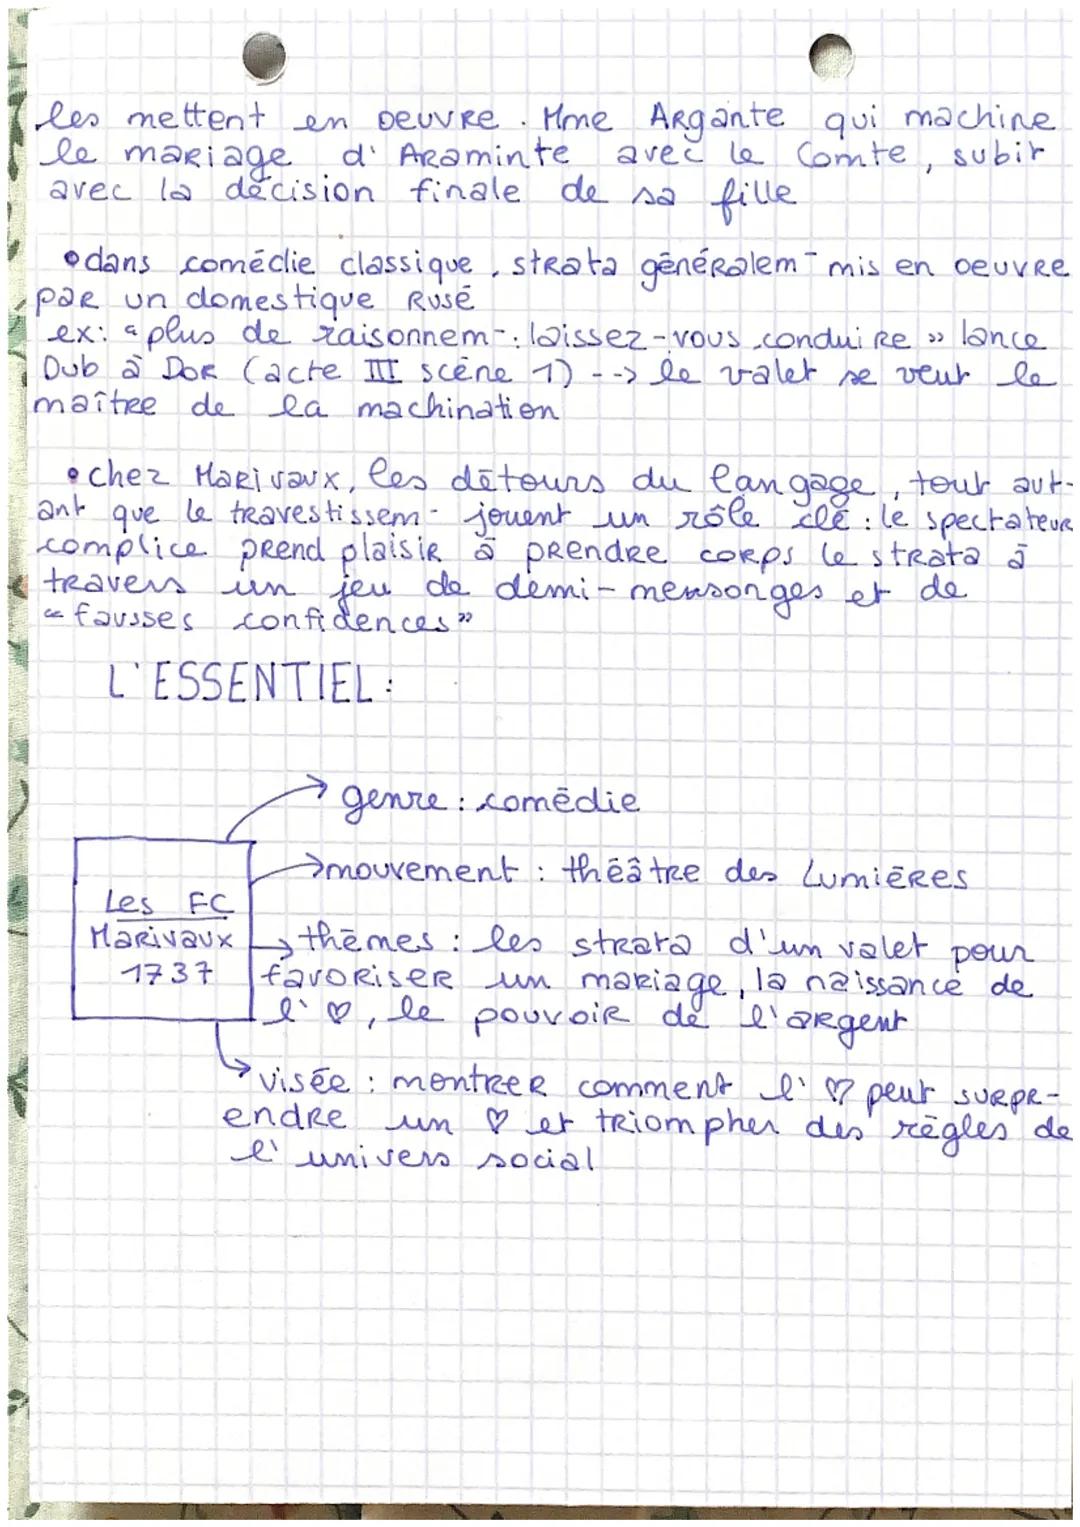 les mettent en oeuvre. Mme Argante qui machine
le mariage d'Araminte avec le Comte, subir
avec la décision finale de sa fille
• dans comédie classique, strata généralem- mis en oeuvre
par un domestique rusé
ex: "plus de raisonnem-: laissez-vous conduire" lance
Dub à Dor (acte III scène 1) --> le valet se veut le
maître de la machination
• chez Marivaux, les détours du langage, tout aut-
ant que le travestissem- jouent un rôle clé : le spectateur
complice prend plaisir à prendre corps le strata à
travers un jeu de demi-mensonges et de
"fausses confidences"
L'ESSENTIEL :
→ genre : comédie
→ mouvement : théâtre des Lumières
Les FC
Marivaux
1737
→ thèmes : les strata d'un valet pour
favoriser un mariage, la naissance de
l'♡, le pouvoir de l'argent
→ visée : montrer comment l'♡ peut surpr-
endre un ♡ et triompher des règles de
l'univers social